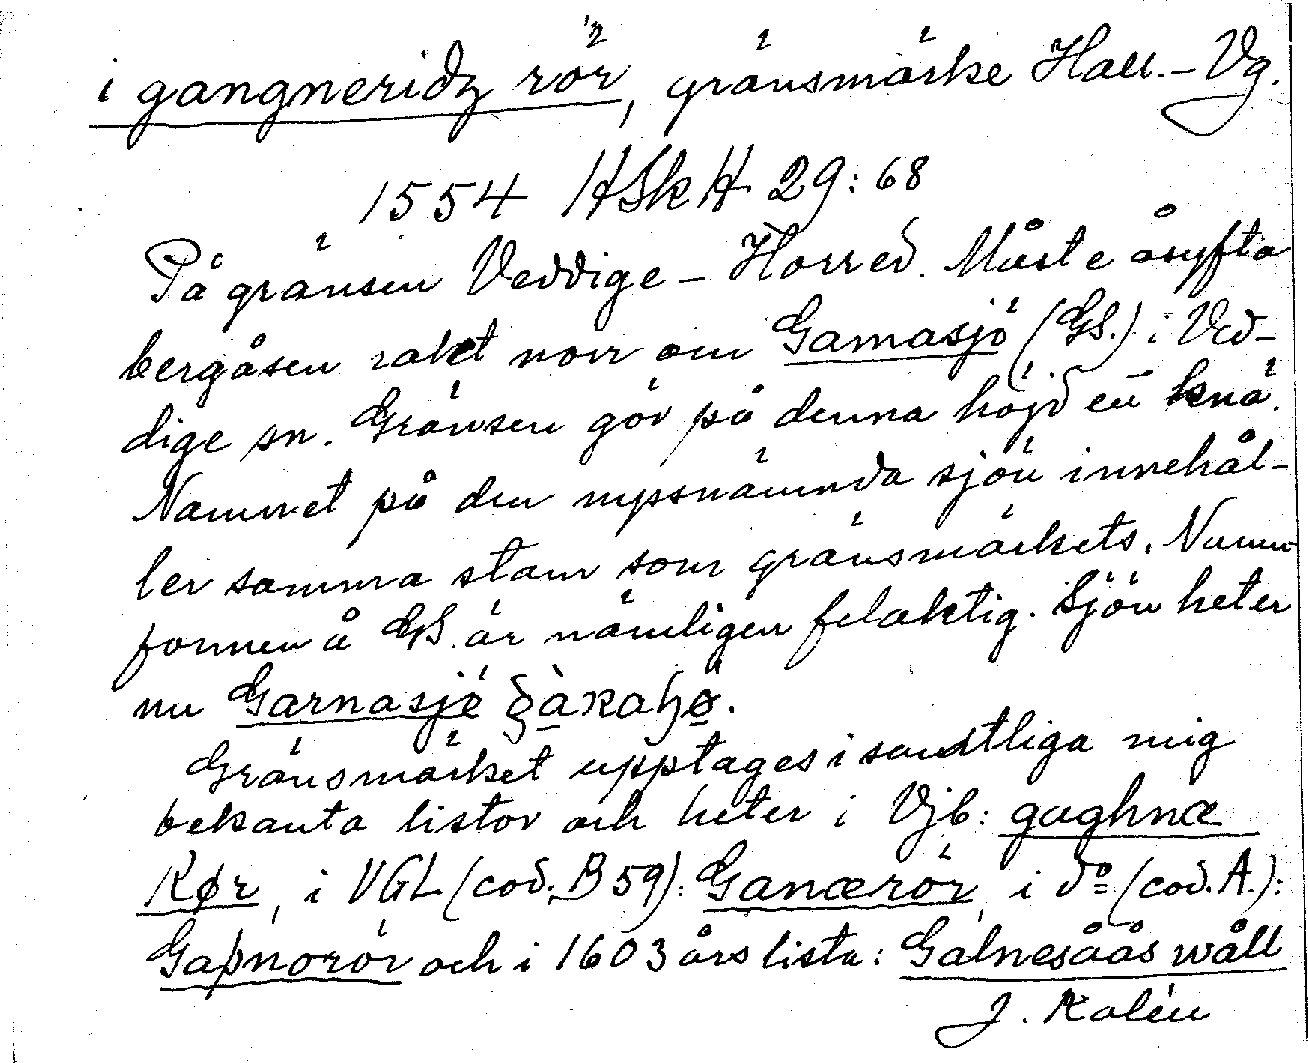 i gangneridz rör, gränsmärke Hall.-Vg.
1554 HSkH 29:68
På gränsen Veddige - Horred. Måste åsyfta
bergåsen rakt norr om Gamasjö (GS.) i Ved-
dige sn. Gränsen gör på denna höjd en knä.
Namnet på den nyssnämnda sjön innehål-
ler samma stam som gränsmärkets. Namn
formen å GS. är nämligen felaktig. Sjön heter
nu Garnasjö
Gränsmärket upptages i samtliga mig
bekanta listor och heter i Vjb: gughnæ
Kør, i VGL (cod. B 59): Ganærör, i do (cod. A.):
Gaþnorör och i 1603 års lista: Galnesåås wåll
J. Kalén